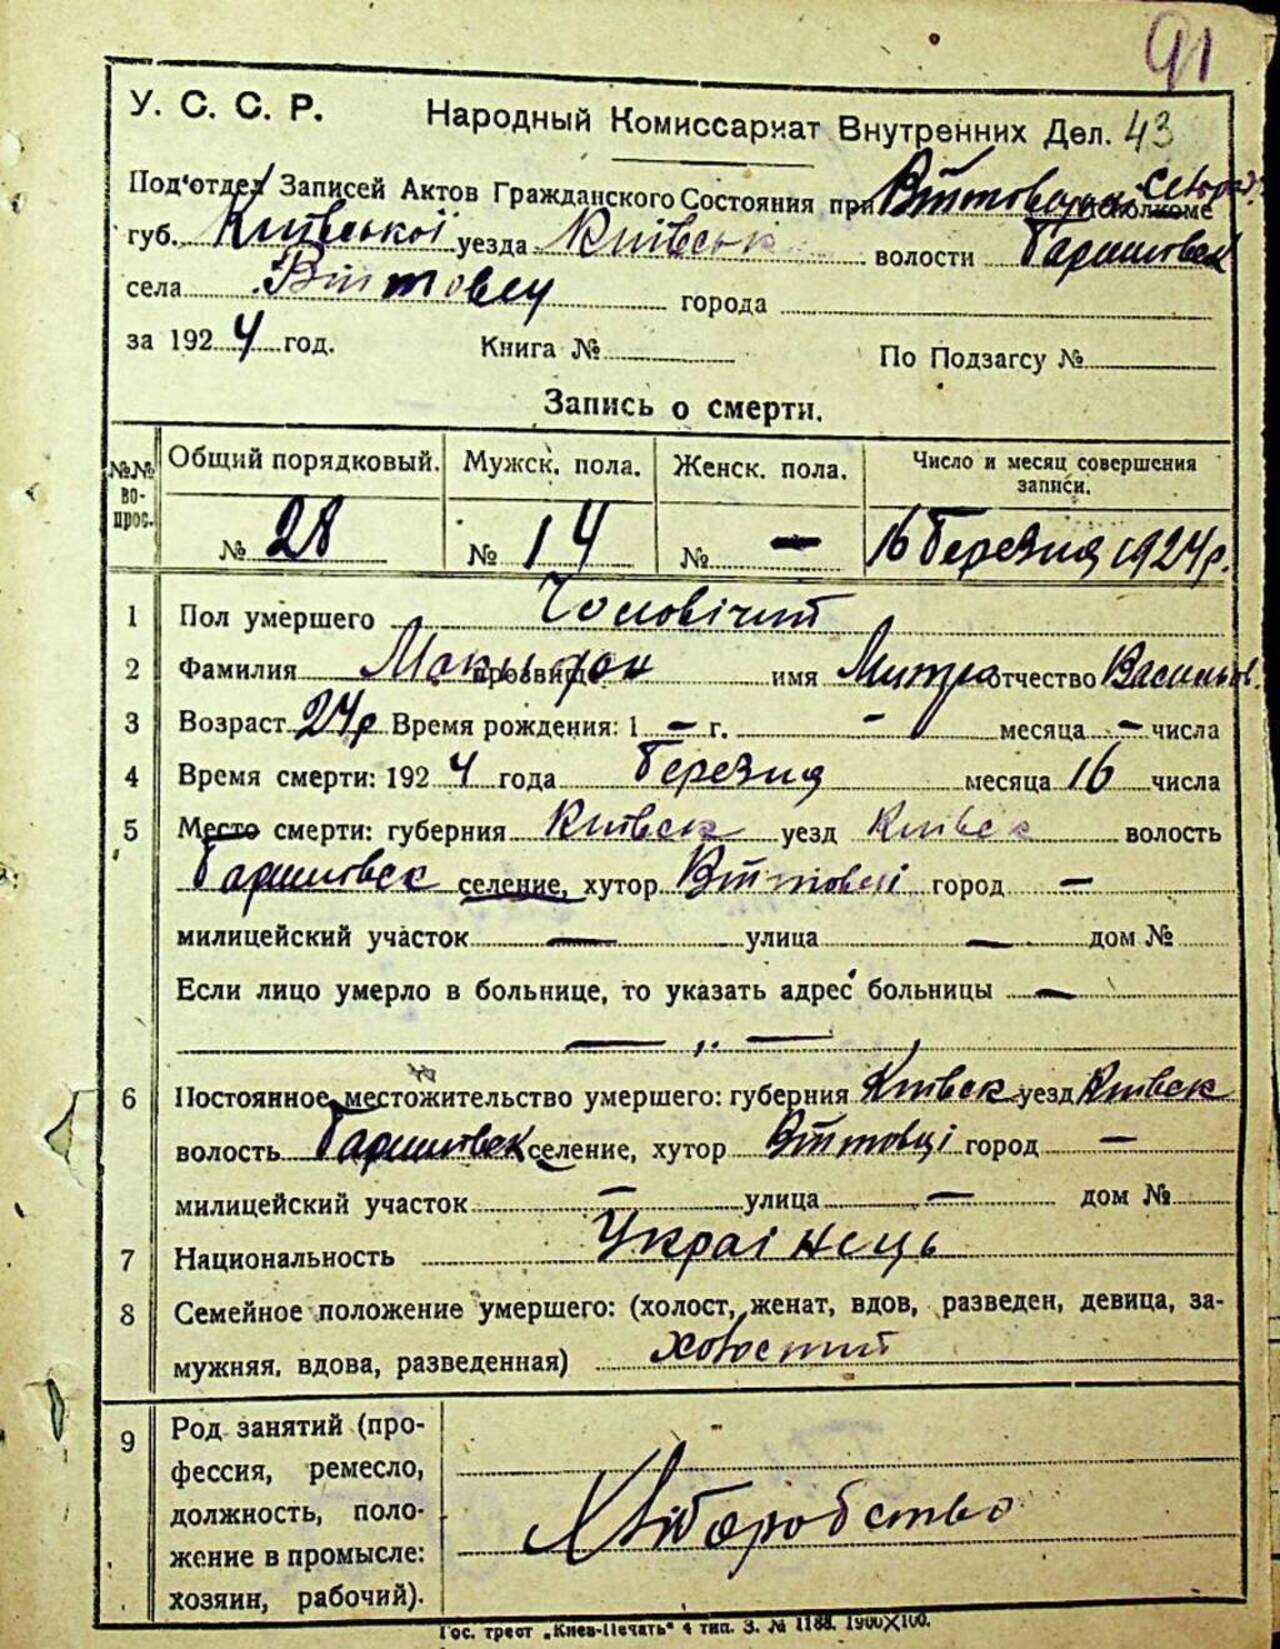 91
У. С. С. Р. Народный Комиссариат Внутренних Дел. 43
Под'отдел Записей Актов Гражданского Состояния при исполкоме
губ. Київської уезда Київськ волости Баришовск
села Війтовец города
за 1924 год. Книга № По Подзагсу №
Запись о смерти.
№№ вопрос. Общий порядковый. Мужск. пола. Женск. пола. Число и месяц совершения
записи.
№ 28 № 14 № — 16 Березня 1924р.
1 Пол умершего Чоловічий
2 Фамилия прозвище имя Митро отчество Васильов.
3 Возраст 24р Время рождения: 1 — г. — месяца — числа
4 Время смерти: 1924 года Березня месяца 16 числа
5 Место смерти: губерния Київск уезд Київск волость
Баришовск селение, хутор Війтовці город —
милицейский участок — улица — дом №
Если лицо умерло в больнице, то указать адрес больницы —
— „ —
6 Постоянное местожительство умершего: губерния Київск уезд Київск
волость Баришовск селение, хутор Війтовці город —
милицейский участок — улица — дом №
7 Национальность Украінець
8 Семейное положение умершего: (холост, женат, вдов, разведен, девица, за-
мужняя, вдова, разведенная) холостий
9 Род занятий (про-
фессия, ремесло,
должность, поло-
жение в промысле:
хозяин, рабочий).
Хліборобство
Гос. трест „Киев-Печать" 4 тип. З. № 1188. 1900×100.